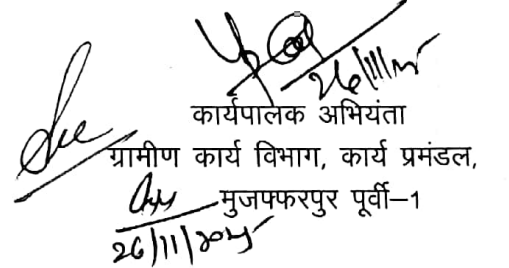 26/11/25
कार्यपालक अभियंता
ग्रामीण कार्य विभाग, कार्य प्रमंडल,
मुजफ्फरपुर पूर्वी–1
26/11/2025